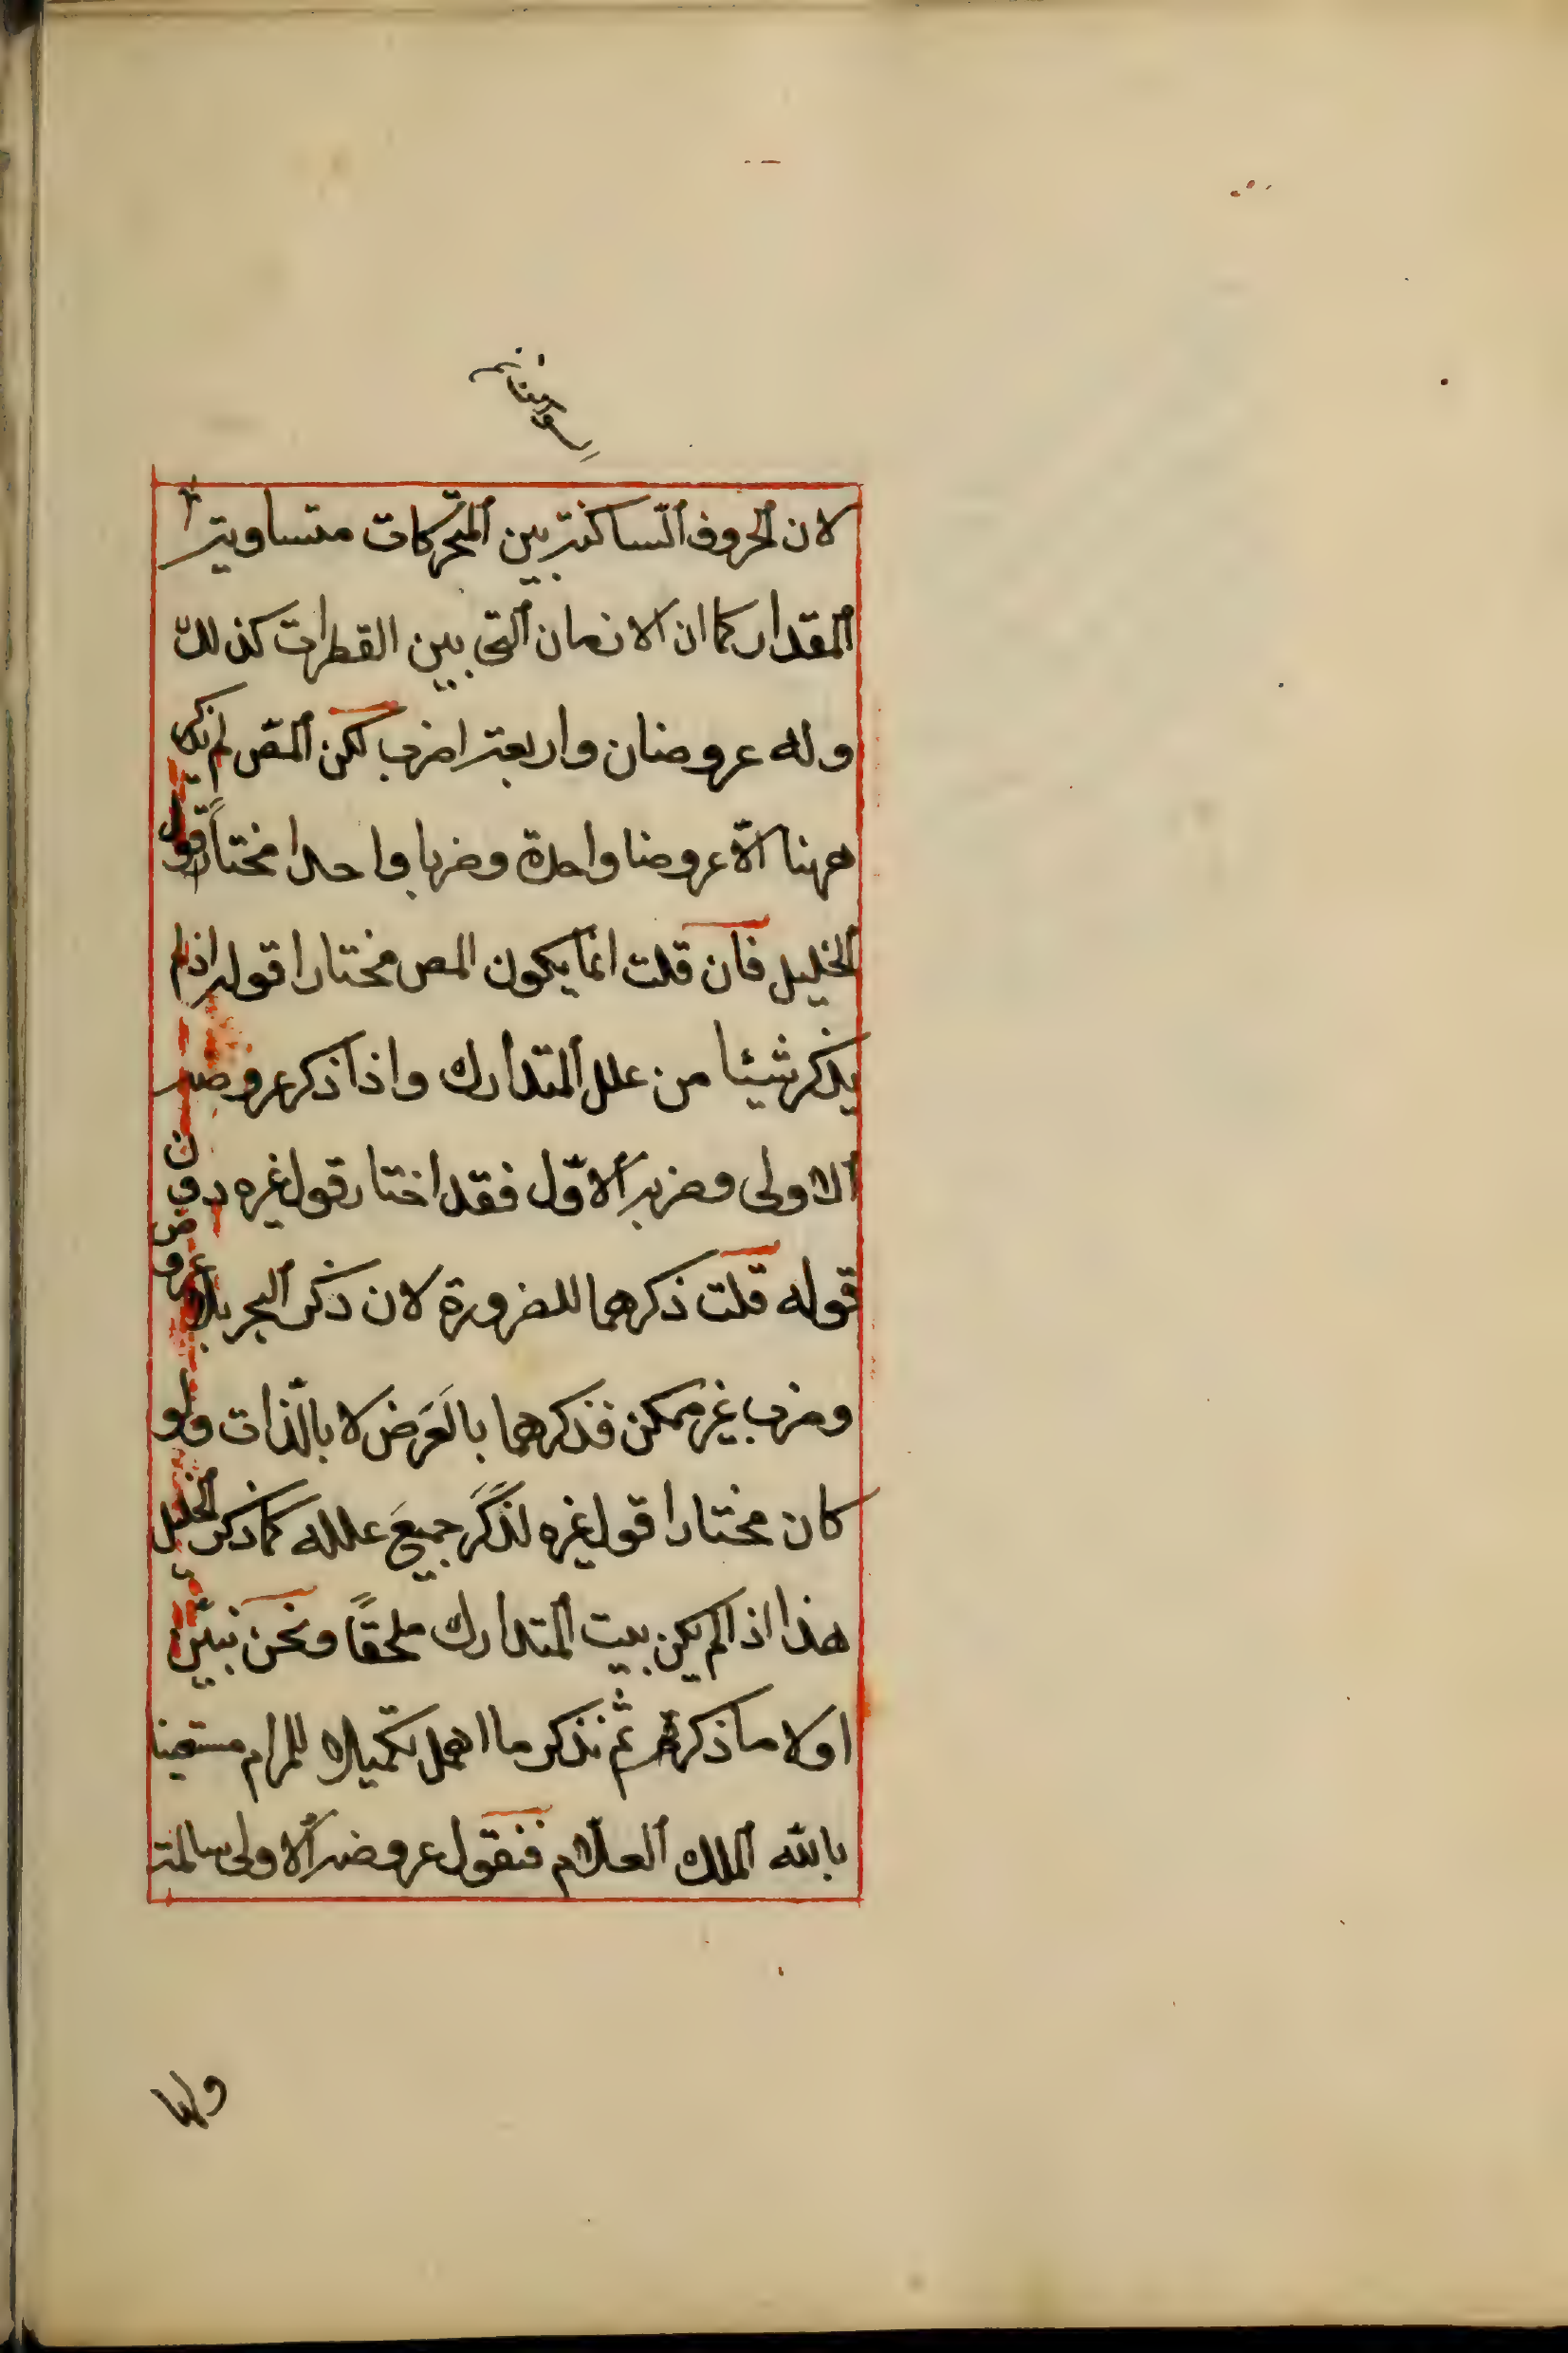 لان الحروف الساكنة بين المتحركات متساوية
المقدار كما ان الازمان التى بين القطرات كذلك
وله عروضان واربعة اضرب لكن المص لم يذكر
ههنا الّا عروضا واحدة وضربا واحدا مختاراً قول
الخليل فان قلت انما يكون المص مختارا قوله اذا لم
يذكر شيئا من علل المتدارك واذا ذكر عروضه
الاولى وضربه الاوّل فقد اختار قول غيره دون
قوله قلت ذكرهما للضرورة لان ذكر البحر بلا عروض
وضرب غير ممكن فذكرهما بالعَرَض لا بالذّات ولو
كان مختارا قول غيره لذَكَرَ جميعَ علله كما ذكر الخليل
هذا اذا لم يكن بيت المتدارك ملحقاً ونحن نبيّن
اولا ما ذكره ثم نذكر ما اهمل تكميلا للمرام مستعينا
بالله الملك العلّام فنقول عروضه الاولى سالمة
ولها